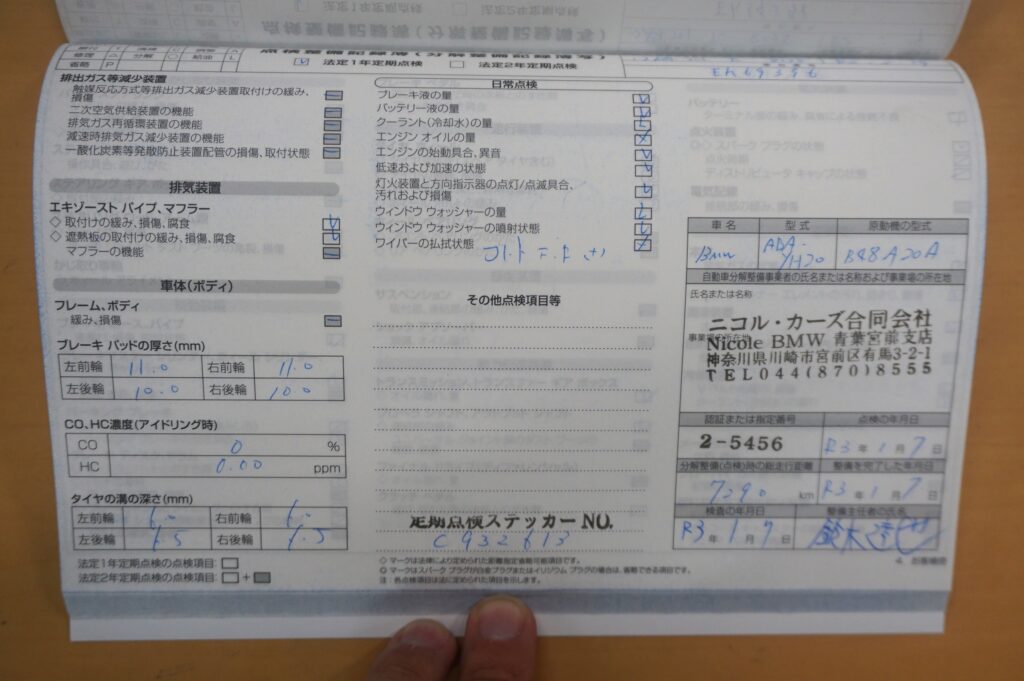 点検整備記録簿(分解整備記録簿)
法定1年定期点検 法定2年定期点検
省略 P
排出ガス等減少装置
触媒反応方式等排出ガス減少装置取付けの緩み、
損傷
二次空気供給装置の機能
排気ガス再循環装置の機能
減速時排気ガス減少装置の機能
一酸化炭素等発散防止装置配管の損傷、取付状態
排気装置
エキゾースト パイプ、マフラー
◇ 取付けの緩み、損傷、腐食
◇ 遮熱板の取付けの緩み、損傷、腐食
マフラーの機能
車体(ボディ)
フレーム、ボディ
緩み、損傷
ブレーキ パッドの厚さ(mm)
左前輪 11.0 右前輪 11.0
左後輪 10.0 右後輪 10.0
CO、HC濃度(アイドリング時)
CO 0 %
HC 0.00 ppm
タイヤの溝の深さ(mm)
左前輪 右前輪
左後輪 右後輪
法定1年定期点検の点検項目:
法定2年定期点検の点検項目: +
日常点検
ブレーキ液の量
バッテリー液の量
クーラント(冷却水)の量
エンジン オイルの量
エンジンの始動具合、異音
低速および加速の状態
灯火装置と方向指示器の点灯/点滅具合、
汚れおよび損傷
ウィンドウ ウォッシャーの量
ウィンドウ ウォッシャーの噴射状態
ワイパーの払拭状態
その他点検項目等
定期点検ステッカー NO.
C932613
◇ マークは法律により定められた距離指定省略可能項目です。
◎ マークはスパーク プラグが白金プラグまたはイリジウム プラグの場合は、省略できる項目です。
注:各点検項目は法に定められた項目を示します。
車名 型式 原動機の型式
BMW B48A20A
自動車分解整備事業者の氏名または名称および事業場の所在地
氏名または名称
ニコル・カーズ合同会社
事業場の所在地
Nicole BMW 青葉宮前支店
神奈川県川崎市宮前区有馬3-2-1
TEL 044(870)8555
認証または指定番号 点検の年月日
2-5456 R3 年 1 月 7 日
分解整備(点検)時の総走行距離 整備を完了した年月日
7290 km R3 年 1 月 7 日
検査の年月日 整備主任者の氏名
R3 年 1 月 7 日 鈴木